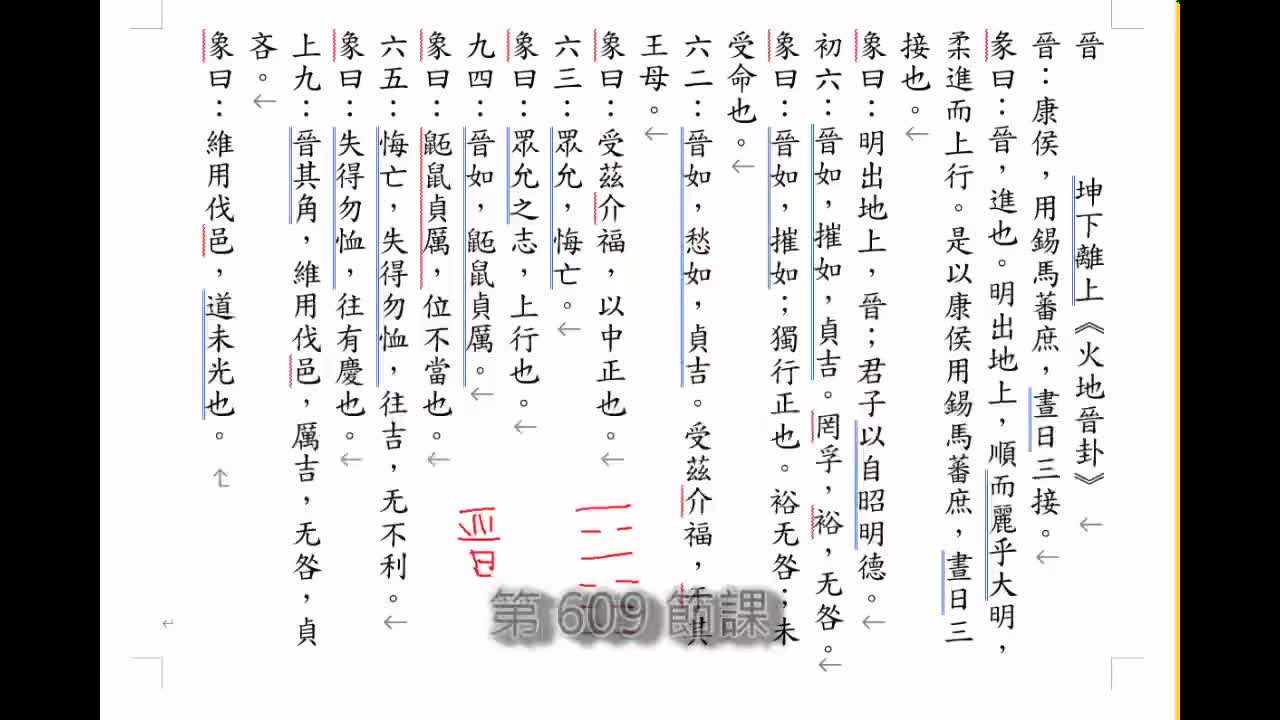 晉 坤下離上《火地晉卦》
晉：康侯，用錫馬蕃庶，晝日三接。
彖曰：晉，進也。明出地上，順而麗乎大明，
柔進而上行。是以康侯用錫馬蕃庶，晝日三
接也。
象曰：明出地上，晉；君子以自昭明德。
初六：晉如，摧如，貞吉。罔孚，裕，无咎。
象曰：晉如，摧如；獨行正也。裕无咎；未
受命也。
六二：晉如，愁如，貞吉。受茲介福，于其
王母。
象曰：受茲介福，以中正也。
六三：眾允，悔亡。
象曰：眾允之志，上行也。
九四：晉如，鼫鼠貞厲。
象曰：鼫鼠貞厲，位不當也。
六五：悔亡，失得勿恤，往吉，无不利。
象曰：失得勿恤，往有慶也。
上九：晉其角，維用伐邑，厲吉，无咎，貞
吝。
象曰：維用伐邑，道未光也。
第 609 節課